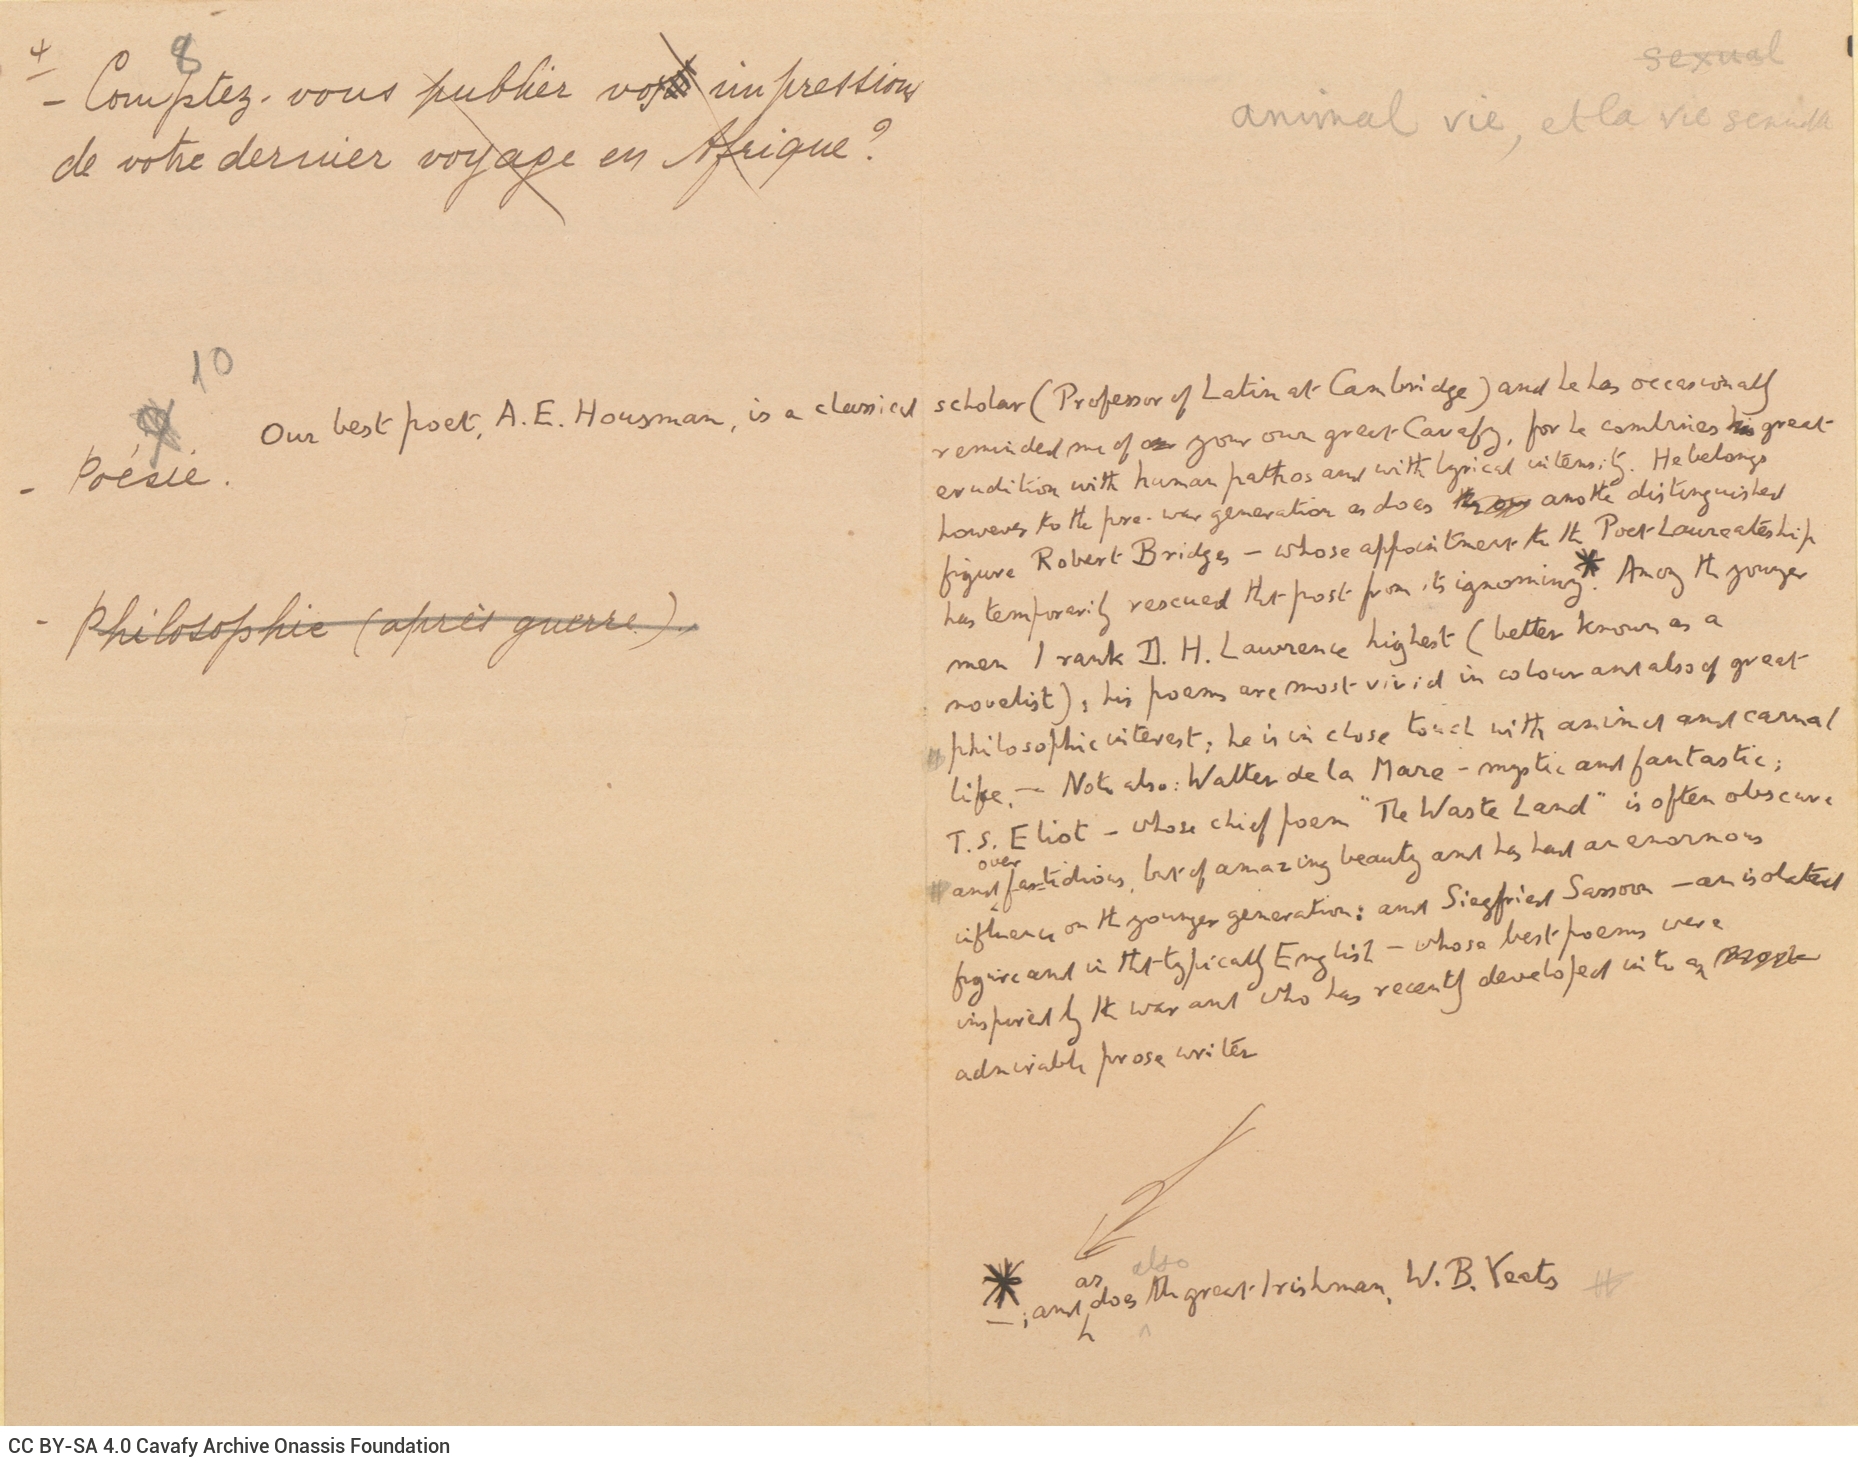 4
8
- Comptez-vous publier vos impressions
de votre dernier voyage en Afrique?
sexual
animal vie, et la vie
10
9
- Poésie.
Our best poet, A.E. Housman, is a classical scholar (Professor of Latin at Cambridge) and he has occasionally
reminded me of our your own great Cavafy, for he combines his great
erudition with human pathos and with lyrical intensity. He belongs
however to the pre-war generation as does another distinguished
figure Robert Bridges – whose appointment to the Poet Laureateship
has temporarily rescued that post from its ignominy*. Among the younger
men I rank D. H. Lawrence highest (better known as a
novelist); his poems are most vivid in colour and also of great
# philosophic interest; he is in close touch with animal and carnal
life. – Note also: Walter de la Mare – mystic and fantastic;
T. S. Eliot – whose chief poem "The Waste Land" is often obscure
over
# and fastidious, but of amazing beauty and has had an enormous
influence on the younger generation: and Siegfried Sassoon – an isolated
figure and in that typically English – whose best poems were
inspired by the war and who has recently developed into an
admirable prose writer
- Philosophie (après guerre).
as also
* –; and does the great Irishman, W. B. Yeats #
CC BY-SA 4.0 Cavafy Archive Onassis Foundation